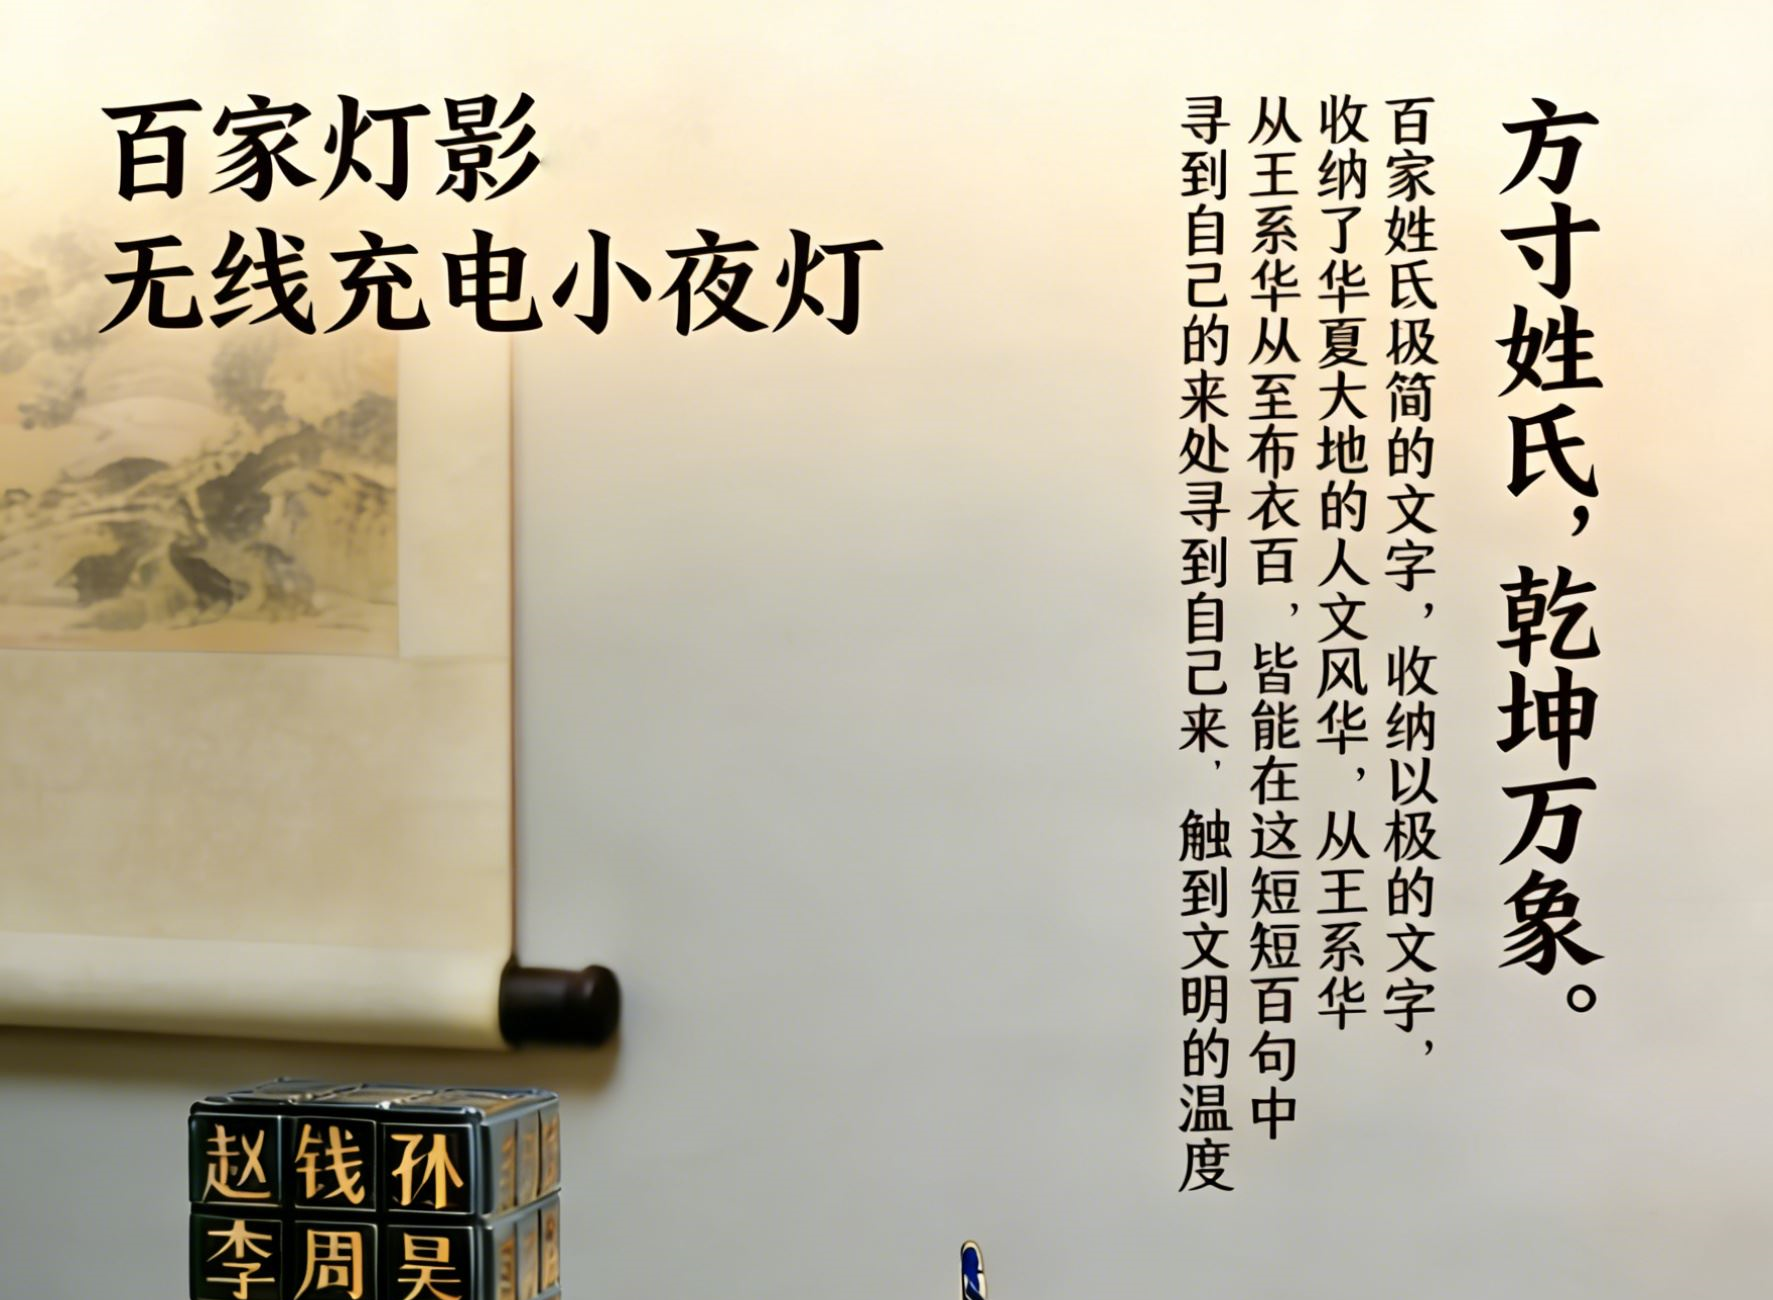 百家灯影
无线充电小夜灯
方寸姓氏，乾坤万象。
百家姓氏极简的文字，收纳以极的文字，
收纳了华夏大地的人文风华，从王系华
从王系华从至布衣百，皆能在这短短百句中
寻到自己的来处寻到自己来，触到文明的温度
赵钱孙
李周昊